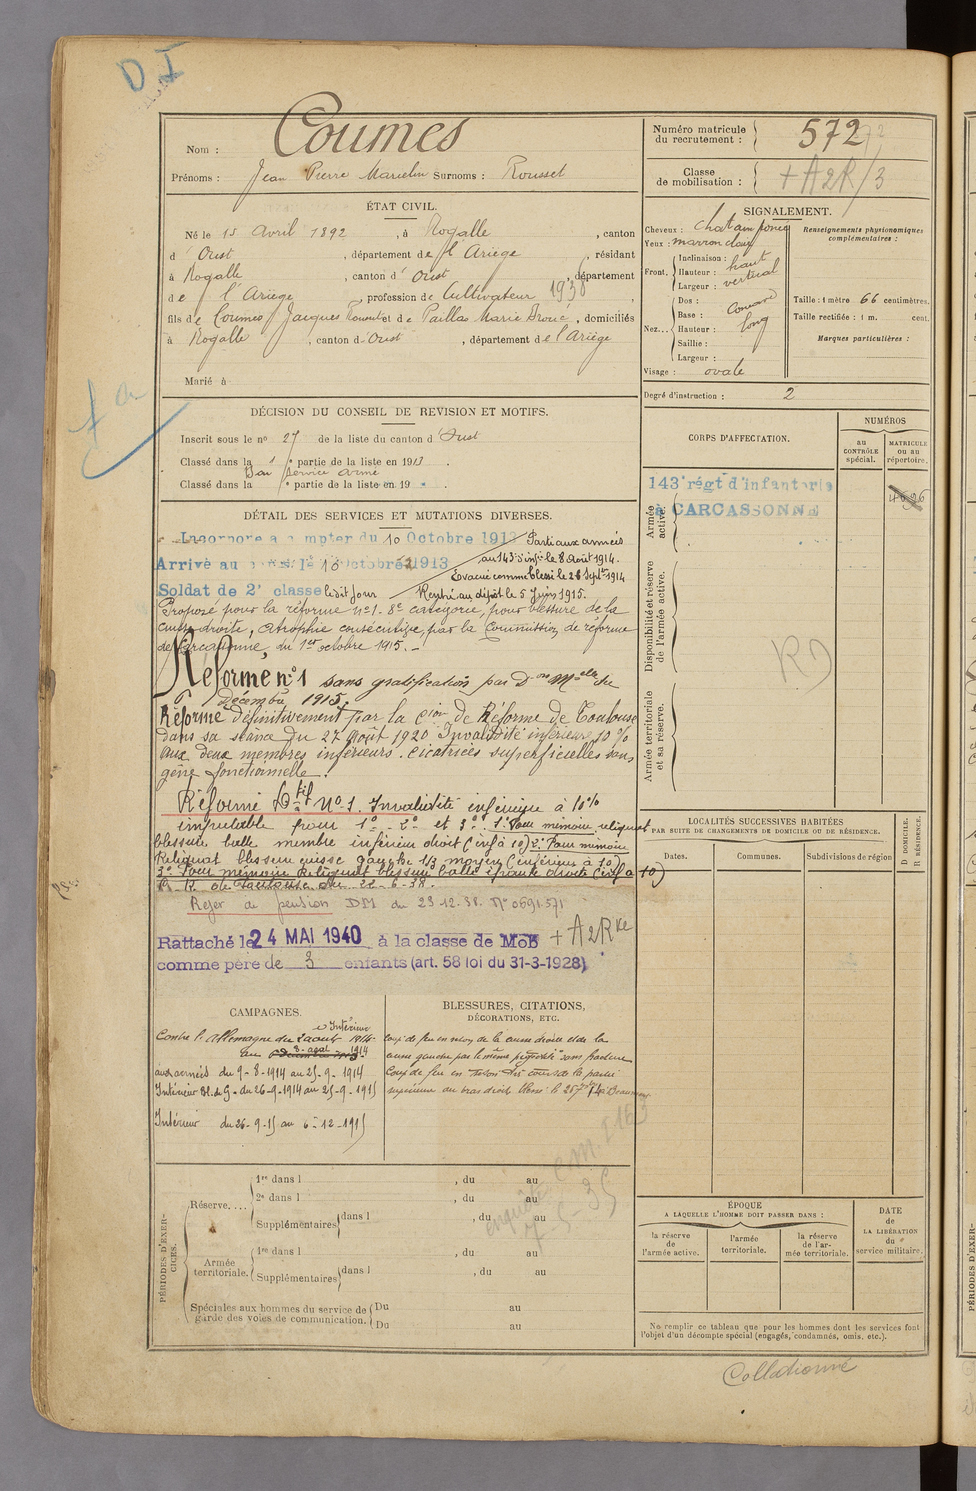 D I
Nom : Coumes
Prénoms : Jean Pierre Marcelin Surnoms : Rousset
Numéro matricule du recrutement : 572
Classe de mobilisation : + A2R/3
ÉTAT CIVIL.
Né le 15 Avril 1892, à Rogalle, canton
d'Oust, département de l'Ariège, résidant
à Rogalle, canton d'Oust, département
de l'Ariège, profession de Cultivateur 1938,
fils de Coumes Jacques et de Paillas Marie, domiciliés
à Rogalle, canton d'Oust, département de l'Ariège
Marié à
SIGNALEMENT.
Cheveux : chatain foncé
Yeux : marron clair
Front. Inclinaison : haut
Hauteur : vertical
Largeur :
Nez... Dos :
Base :
Hauteur : long
Saillie :
Largeur :
Visage : ovale
Renseignements physionomiques complémentaires :
Taille : 1 mètre 66 centimètres.
Taille rectifiée : 1 m. cent.
Marques particulières :
Degré d'instruction : 2
DÉCISION DU CONSEIL DE REVISION ET MOTIFS.
Inscrit sous le no 27 de la liste du canton d'Oust
Classé dans la 1 e partie de la liste en 1913.
Bon service armé
Classé dans la e partie de la liste en 19 .
CORPS D'AFFECTATION.
NUMÉROS
au CONTRÔLE spécial.
MATRICULE ou au répertoire.
Armée active.
143e régt d'infanterie
à CARCASSONNE
Disponibilité et réserve de l'armée active.
RD
Armée territoriale et sa réserve.
DÉTAIL DES SERVICES ET MUTATIONS DIVERSES.
Incorporé à compter du 10 Octobre 1913 Parti aux armées
au 143e d'infie le 8 août 1914.
Arrivé au corps le 10 octobre 1913
Evacué comme blessé le 26 Septbre 1914
Soldat de 2e classe le dit jour Rentré au dépôt le 5 Juin 1915.
Proposé pour la réforme no 1. 8e catégorie, pour blessure de la
cuisse droite, atrophie consécutive par la Commission de réforme
de Carcassonne, du 1er octobre 1915. -
Réformé no 1 sans gratification par Don Melle du
6 Décembre 1915.
Réformé définitivement par la Cion de Réforme de Toulouse
dans sa séance du 27 Août 1920 Invalidité inférieure 10 %
aux deux membres inférieurs. Cicatrices superficielles sans
gêne fonctionnelle.
Réformé Dtif No 1. Invalidité inférieure à 10%
imputable pour 1o 2o et 3o. 1o Pour mémoire reliquat
blessure balle membre inférieur droit (inf à 10) 2o Pour mémoire
Reliquat blessure cuisse gauche 1/3 moyen (inférieur à 10)
3o Pour mémoire Reliquat blessure balle épaule droite (inf à 10)
C. R. de Toulouse du 22-6-38.
Rejet de pension DM du 23-12-38. No 0691571
Rattaché le 24 MAI 1940 à la classe de Mob + A2R
comme père de 3 enfants (art. 58 loi du 31-3-1928)
LOCALITÉS SUCCESSIVES HABITÉES
PAR SUITE DE CHANGEMENTS DE DOMICILE OU DE RÉSIDENCE.
Dates.
Communes.
Subdivisions de région
D DOMICILE.
R RÉSIDENCE.
CAMPAGNES.
Contre l'Allemagne du 2 août 1914 Intérieur
au 8 août 1914
aux armées du 9-8-1914 au 25-9-1914
Intérieur Bl. de G. du 26-9-1914 au 25-9-1915
Intérieur du 26-9-15 au 6-12-1915
BLESSURES, CITATIONS,
DÉCORATIONS, ETC.
Coup de feu en séton de la cuisse droite et de la
cuisse gauche par le même projectile sans fracture
Coup de feu en séton de la partie
supérieure du bras droit
enquête C.M.
PÉRIODES D'EXERCICES.
Réserve....
1re dans l , du au
2e dans l , du au
Supplémentaires dans l , du au
Armée territoriale.
1re dans l , du au
Supplémentaires dans l , du au
Spéciales aux hommes du service de garde des voies de communication.
Du au
Du au
ÉPOQUE
A LAQUELLE L'HOMME DOIT PASSER DANS :
la réserve de l'armée active.
l'armée territoriale.
la réserve de l'armée territoriale.
DATE de LA LIBÉRATION du service militaire.
Ne remplir ce tableau que pour les hommes dont les services font
l'objet d'un décompte spécial (engagés, condamnés, omis, etc.).
Collationné